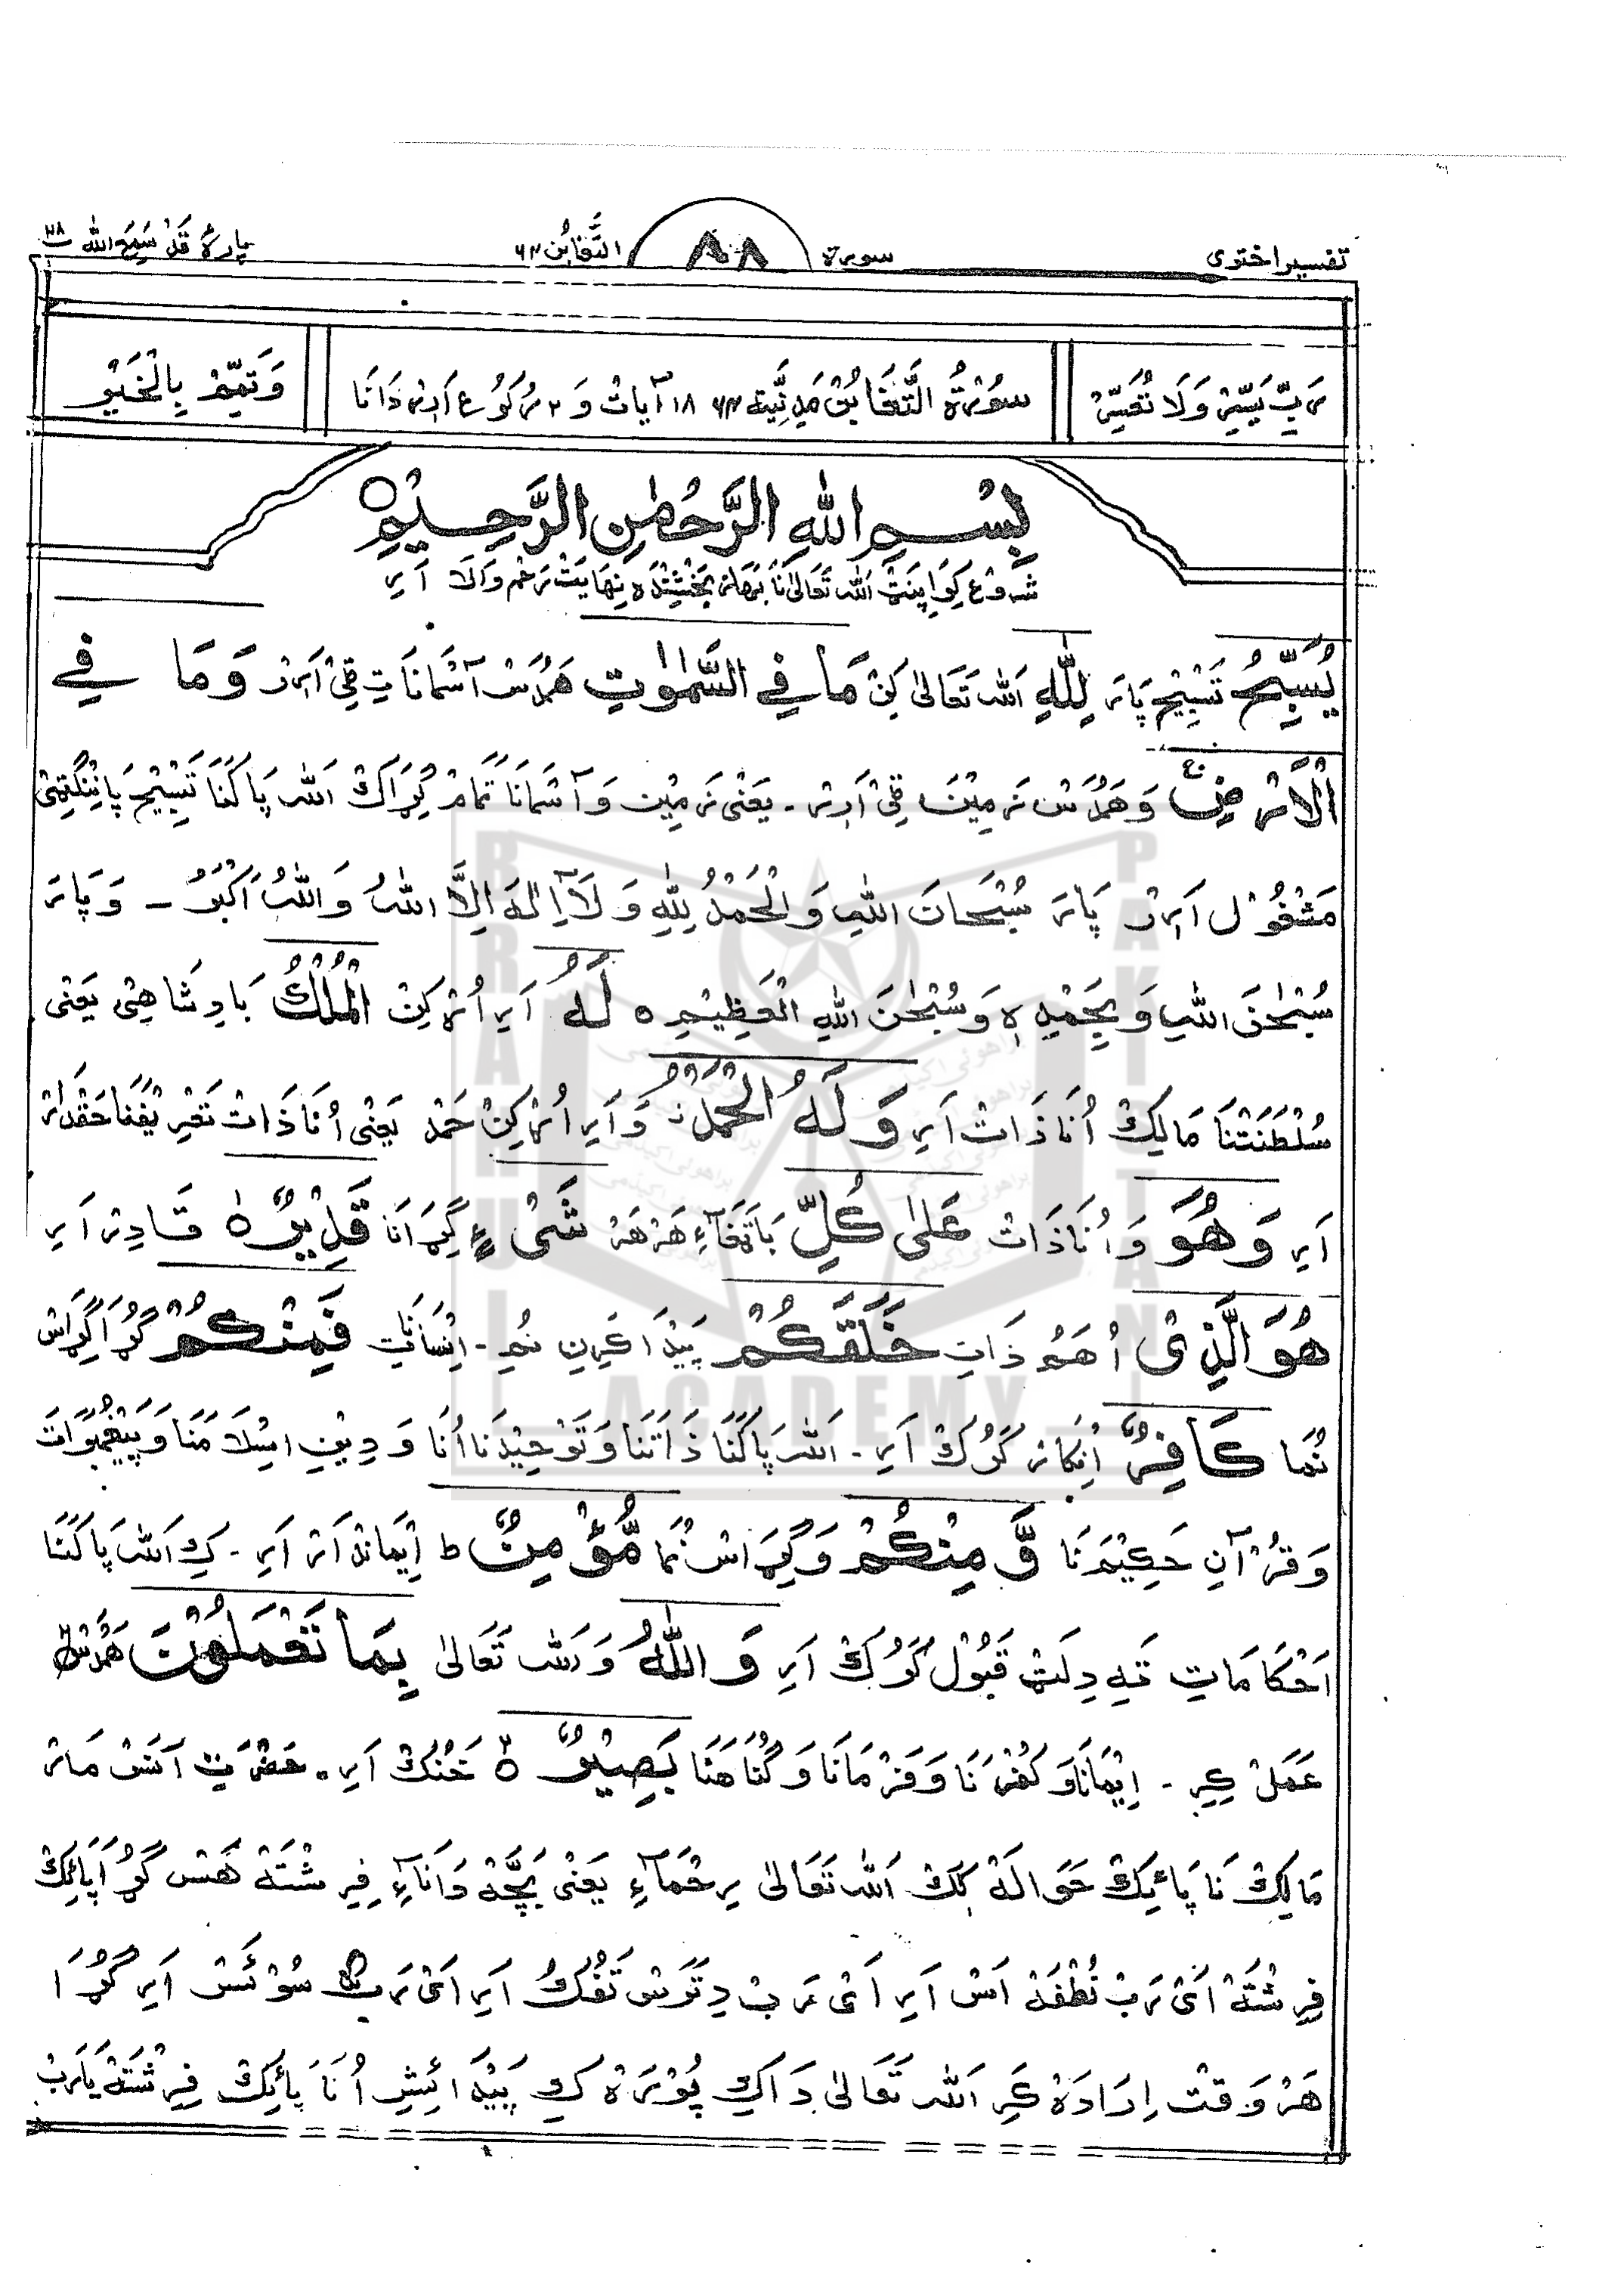 تفسیر اختری
سورة
٨٨
التَّغَابُن ٦٤
پارہ قَدْ سَمِعَ اللّٰه ٢٨
رَبِّ يَسِّرْ وَلَا تُعَسِّرْ
سُوْرَةُ التَّغَابُنْ مَدَنِیَّة ٦٤ ١٨ آیاتْ وَ ٢ رُکُوْع اَرِیْ دَانَا
وَتَمِّمْ بِالْخَيْرِ
بِسْمِ اللّٰهِ الرَّحْمٰنِ الرَّحِيْمِ ○
شروْع کِوَا پِنَتْ اَللّٰه تَعَالیٰ نَا بَهَازْ بَخْشِنْدَه نِهَایَتْ رَحْم وَالَا اَرِے
يُسَبِّحُ تَسْبِیْح پَارَہ لِلّٰهِ اَللّٰه تَعَالیٰ کِنْ مَا فِي السَّمٰوٰتِ هَمُڑسْ آسْمَانَاتِ ٹِیْ اَرِیْ وَمَا فِي
الْاَرْضِ ۚ وَهَمُڑسْ زَمِیْنَ ٹِیْ اَرِیْ ۔ یَعْنِی زَمِیْن وَ آسْمَانَا تَمَامْ گِڑَاکْ اَللّٰه پَاکُنَا تَسْبِیْح پَانِنْگَٹِی
مَشْغُوْل اَرِیْ پَارَہ سُبْحَانَ اللّٰهِ وَالْحَمْدُ لِلّٰهِ وَلَآ اِلٰهَ اِلَّا اللّٰهُ وَاللّٰهُ اَکْبَرُ ۔ وَپَارَہ
سُبْحٰنَ اللّٰهِ وَبِحَمْدِهٖ وَسُبْحٰنَ اللّٰهِ الْعَظِيْمِ ○ لَهُ اَرِے اُڑکِنْ الْمُلْكُ بَادِشَاهِی یَعْنِی
سُلْطَنَتْنَا مَالِكْ اُنَا ذَاتْ اَرِے وَلَهُ الْحَمْدُ ۚ وَاَرِے اُڑکِنْ حَمْد یَعْنِی اُنَا ذَاتْ تَعْرِیْفْنَا حَقْدَارْ
اَرِے وَهُوَ وَاُنَا ذَاتْ عَلٰى كُلِّ بَاتِغَاءِ هَرْهَرْ شَیْءٍ گِڑَانَا قَدِيْرٌ ○ قَادِرْ اَرِے
هُوَ الَّذِیْ اُ هَمُو ذَاتِ خَلَقَكُمْ پَیْدَا کَرِےنِ نُمِے ۔ اِنْسَانَاتِ فَمِنْكُمْ گُڑَا گِڑَاسْ
نُمَا كَافِرٌ اِنْکَارْ کَرُوکْ اَرِے ۔ اَللّٰه پَاکُنَا ذَاتَنَا وَتَوْحِیْدَنَا اُنَا وَ دِیْنِ اِسْلَامَنَا وَپَیْغَمْبَرَاتَ
وَقُرْآنِ حَکِیْمَ نَا وَّمِنْكُمْ وَگِڑَاسْ نُمَا مُّؤْمِنٌ ط اِیْمَانْدَارْ اَرِے ۔ کِہ اَللّٰه پَاکُنَا
اَحْکَامَاتِ تَہِ دِلَتْ قَبُوْل کَرُوکْ اَرِے وَاللّٰهُ وَ اَللّٰه تَعَالیٰ بِمَا تَعْمَلُوْنَ هَمُڑسْ
عَمَلْ کِرِے ۔ اِیْمَانَا وَکُفْرَنَا وَفَرْمَانَا وَگُنَاهَنَا بَصِيْرٌ ○ خَنُنْکْ اَرِے ۔ حَضْرَتِ آنَسْ مَارْ
مَالِكْ نَا پَائِکْ حَوَالَهْ کَکْ اَللّٰه تَعَالیٰ رِحْمَآءِ یَعْنِی بَچَّهْ دَانَآءِ فِرِشْتَهْ هَسْ گُڑَا پَائِکْ
فِرِشْتَهْ اَیْ رَبْ نُطْفَهْ اَسْ اَرِے اَیْ رَبْ دِتَرَسْ تَفُکْ اَرِے اَیْ رَبْ سُوْئَسْ اَرِے گُڑَا
هَرْوَقْتْ اِرَادَهْ کَرِے اَللّٰه تَعَالیٰ دَاکِہ پُوْرَهْ کِے پَیْدَائِشِ اُنَا پَائِکْ فِرِشْتَهْ یَارَبْ
BRAHUI
ACADEMY
PAKISTAN